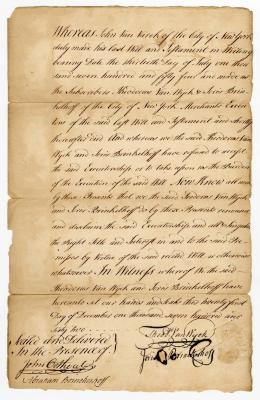 Whereas John Van Varck of the City of New York
duly made his last Will and Testament in Writing
bearing Date the thirtieth Day of July one thou
sand seven hundred and fifty four and made us
the Subscribers Theodorus Van Wyck & Joris Brin
khelhoff of the City of New York Merchants Execu
tors of the said last Will and Testament and shortly
thereafter died And whereas we the said Theodorus Van
Wyck and Joris Brinkelhoff have refused to accept
the said Executorship or to take upon us the Burden
of the Execution of the said Will Now Know all men
by these Presents that we the said Theodorus Van Wyck
and Joris Brinkelhoff do by these Presents renounce
and disclaim the said Executorship and all Singular
the Right Title and Interest in and to the said Pre
mises by Virtue of the said recited Will or otherwise
whatsoever In Witness whereof We the said
Theodorus Van Wyck and Joris Brinkelhoff have
hereunto set our Hands and Seals this twenty first
Day of December one thousand seven hundred and
fifty two
Sealed and Delivered
In the Presence of
Theods Van Wyck
Joris Brinckerhoff
John
Abraham Brinckerhoff